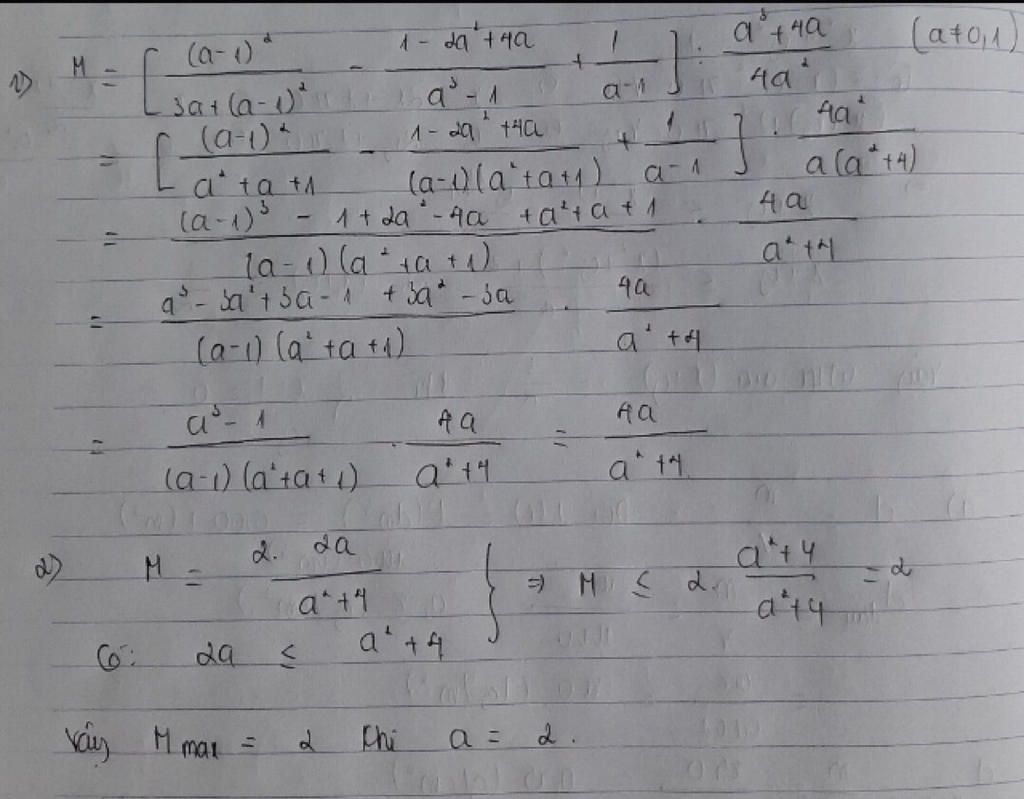 1) M = [ (a-1)² / (3a+(a-1)²) - (1-2a²+4a) / (a³-1) + 1 / (a-1) ] : (a³+4a) / 4a² (a≠0,1)
= [ (a-1)² / (a²+a+1) - (1-2a²+4a) / ((a-1)(a²+a+1)) + 1 / (a-1) ] . 4a² / (a(a²+4))
= ((a-1)³ - 1+2a²-4a +a²+a+1) / ((a-1)(a²+a+1)) . 4a / (a²+4)
= (a³-3a²+3a-1 +3a²-3a) / ((a-1)(a²+a+1)) . 4a / (a²+4)
= (a³-1) / ((a-1)(a²+a+1)) . 4a / (a²+4) = 4a / (a²+4)
2) M = 2. 2a / (a²+4) } ⇒ M ≤ 2. (a²+4) / (a²+4) = 2
Có: 2a ≤ a²+4
Vậy M max = 2 khi a = 2.